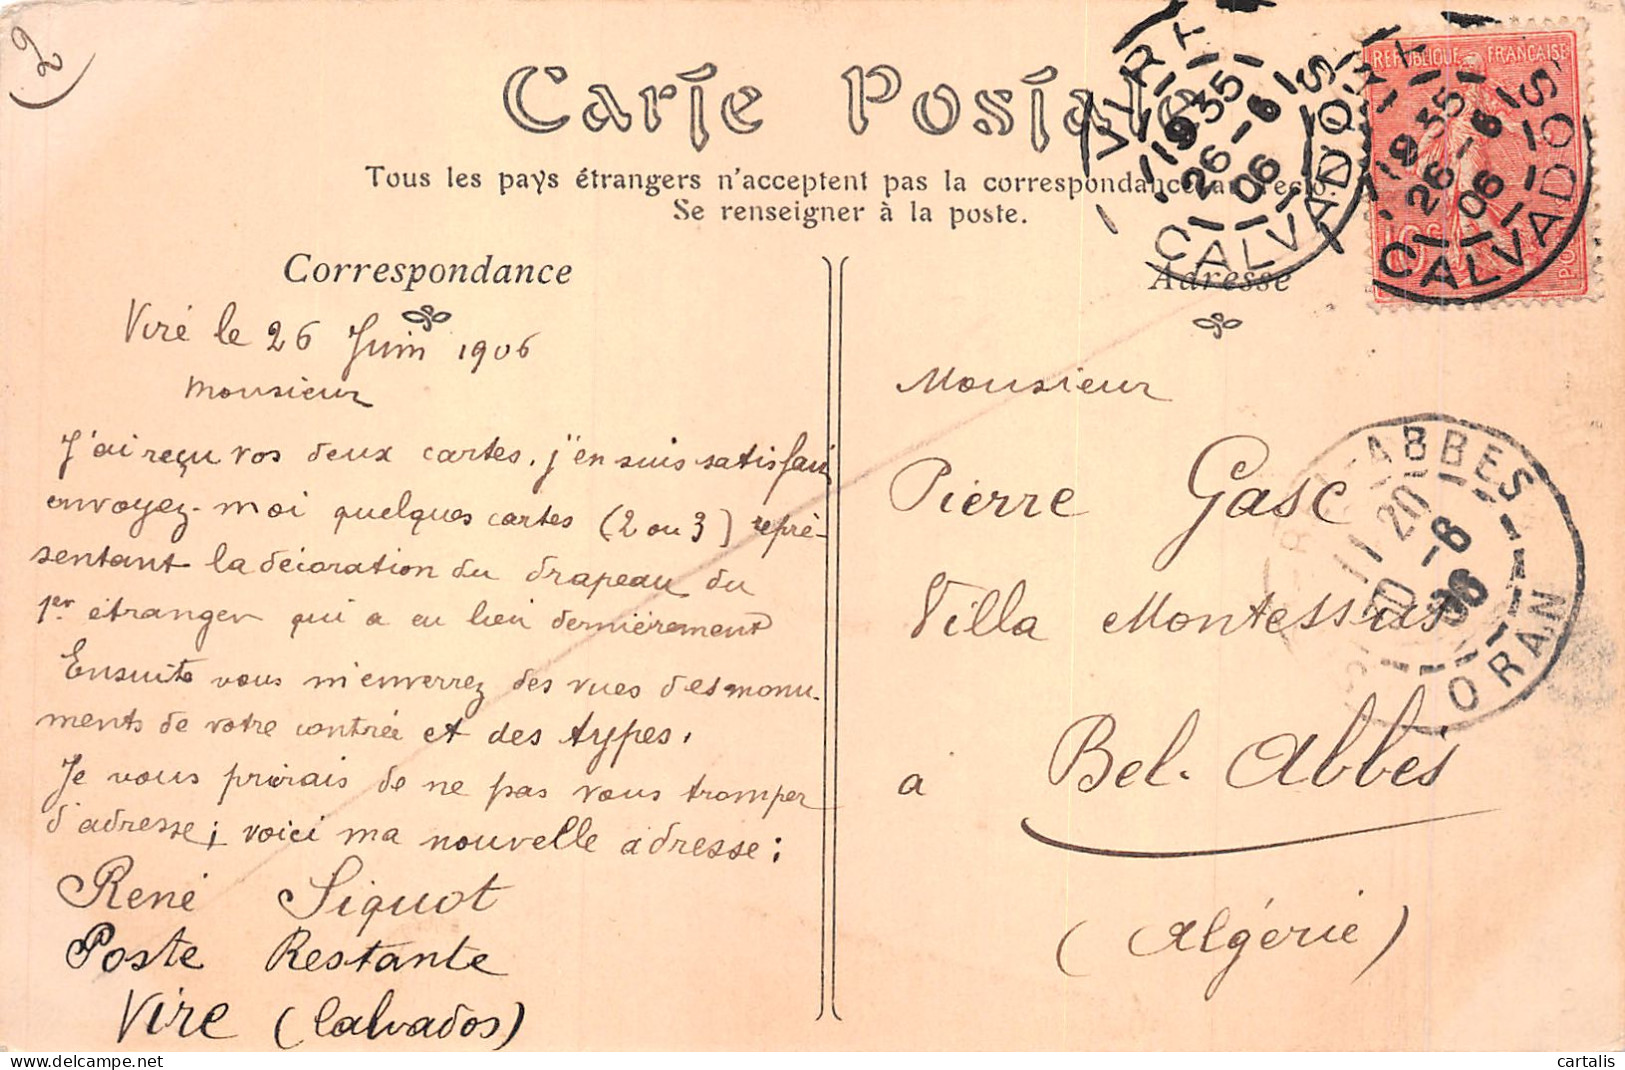 2
Carte Postale
Tous les pays étrangers n'acceptent pas la correspondance au recto.
Se renseigner à la poste.
Correspondance
Vire le 26 Juin 1906
Monsieur
J'ai reçu vos deux cartes, j'en suis satisfait
envoyez-moi quelques cartes (2 ou 3) repré-
sentant la décoration du drapeau du
1er étranger qui a eu lieu dernièrement
Ensuite vous m'enverrez des vues des monu-
ments de votre contrée et des types.
Je vous prierais de ne pas vous tromper
d'adresse; voici ma nouvelle adresse:
René Siquot
Poste Restante
Vire (Calvados)
Adresse
Monsieur
Pierre Gasc
Villa Montessus
a Bel-Abbès
(Algérie)
VIRE
19 35
26-6
06
CALVADOS
REPUBLIQUE FRANÇAISE
10c
VIRE
19 35
26-6
06
CALVADOS
BEL-ABBES
11 20
30-6
06
ORAN
cartalis